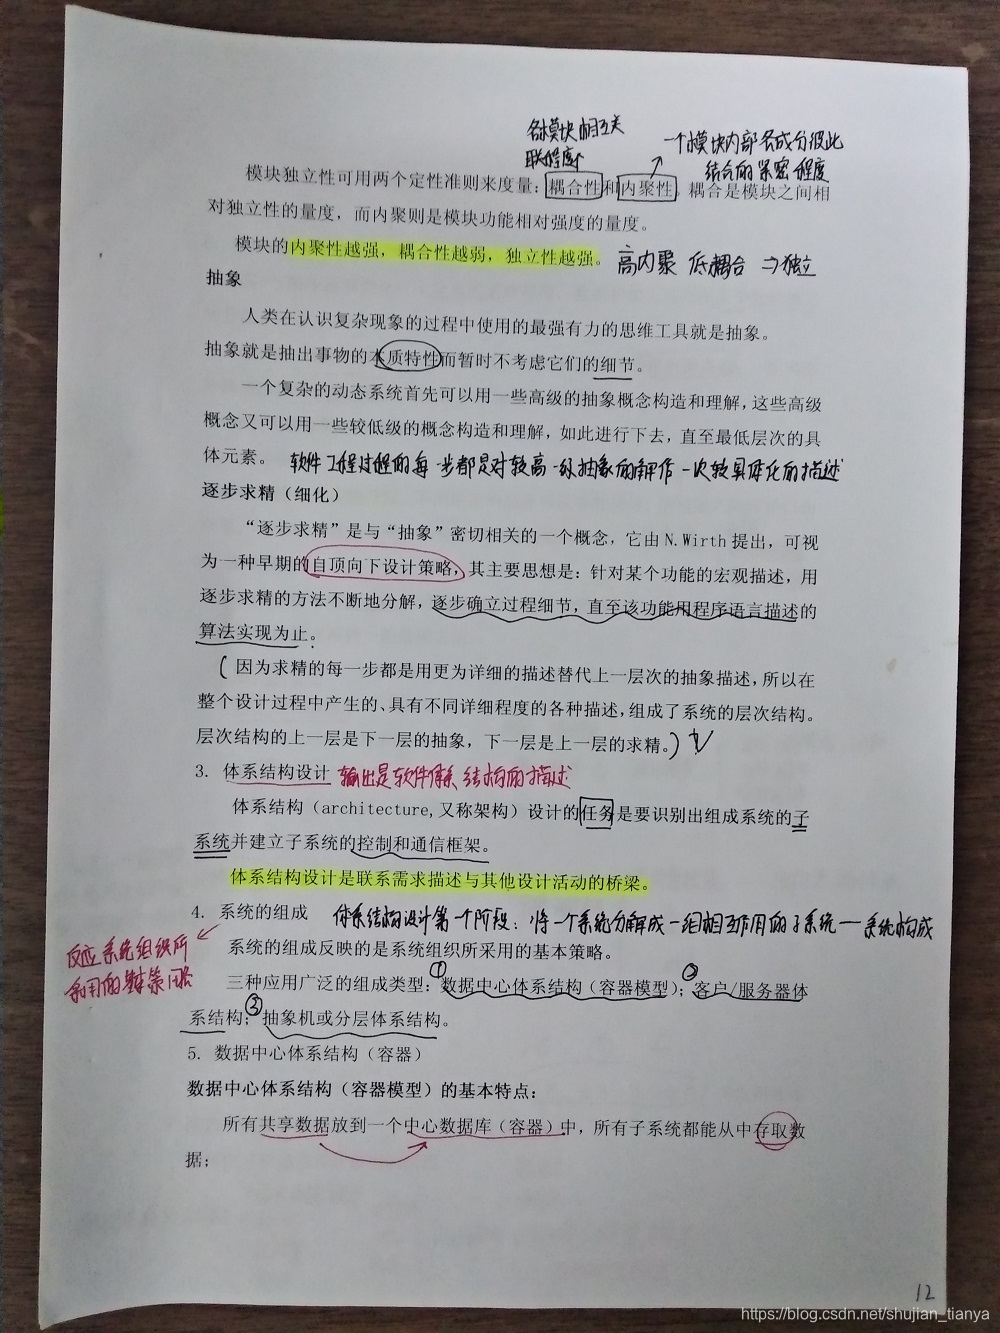 各模块相互关
联程度
一个模块内部各成分彼此
结合的紧密程度
模块独立性可用两个定性准则来度量：耦合性和内聚性。耦合是模块之间相
对独立性的量度，而内聚则是模块功能相对强度的量度。
模块的内聚性越强，耦合性越弱，独立性越强。 高内聚 低耦合 ⇒独立
抽象
人类在认识复杂现象的过程中使用的最强有力的思维工具就是抽象。
抽象就是抽出事物的本质特性而暂时不考虑它们的细节。
一个复杂的动态系统首先可以用一些高级的抽象概念构造和理解，这些高级
概念又可以用一些较低级的概念构造和理解，如此进行下去，直至最低层次的具
体元素。 软件工程过程的每一步都是对较高一级抽象的解作一次较具体化的描述
逐步求精（细化）
“逐步求精”是与“抽象”密切相关的一个概念，它由 N.Wirth 提出，可视
为一种早期的自顶向下设计策略，其主要思想是：针对某个功能的宏观描述，用
逐步求精的方法不断地分解，逐步确立过程细节，直至该功能用程序语言描述的
算法实现为止。
（因为求精的每一步都是用更为详细的描述替代上一层次的抽象描述，所以在
整个设计过程中产生的、具有不同详细程度的各种描述，组成了系统的层次结构。
层次结构的上一层是下一层的抽象，下一层是上一层的求精。）
3. 体系结构设计 输出是软件体系结构的描述
体系结构（architecture,又称架构）设计的任务是要识别出组成系统的子
系统并建立子系统的控制和通信框架。
体系结构设计是联系需求描述与其他设计活动的桥梁。
4. 系统的组成 体系结构设计第一个阶段：将一个系统分解成一组相互作用的子系统—系统构成
反应系统组织所
采用的基本策略
系统的组成反映的是系统组织所采用的基本策略。
三种应用广泛的组成类型：①数据中心体系结构（容器模型）；②客户/服务器体
系结构；③抽象机或分层体系结构。
5. 数据中心体系结构（容器）
数据中心体系结构（容器模型）的基本特点：
所有共享数据放到一个中心数据库（容器）中，所有子系统都能从中存取数
据；
12
https://blog.csdn.net/shujian_tianya